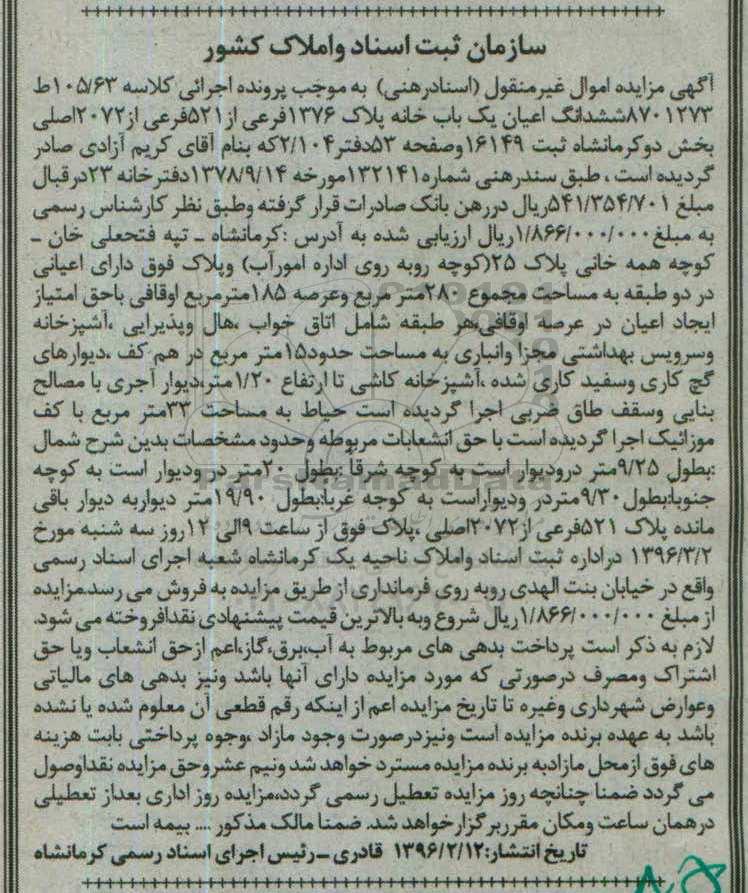 سازمان ثبت اسناد واملاک کشور
آگهی مزایده اموال غیرمنقول (اسنادرهنی) به موجب پرونده اجرائی کلاسه ۱۰۵/۶۳ط
۸۷۰۱۲۷۳ششدانگ اعیان یک باب خانه پلاک ۱۳۷۶فرعی از۵۲۱فرعی از۲۰۷۲اصلی
بخش دوکرمانشاه ثبت ۱۶۱۴۹وصفحه ۵۳دفتر۲/۱۰۴که بنام آقای کریم آزادی صادر
گردیده است ، طبق سندرهنی شماره۱۳۲۱۴۱مورخه ۱۳۷۸/۹/۱۴دفترخانه ۲۳درقبال
مبلغ ۵۴۱/۳۵۴/۷۰۱ریال دررهن بانک صادرات قرار گرفته وطبق نظر کارشناس رسمی
به مبلغ۱/۸۶۶/۰۰۰/۰۰۰ریال ارزیابی شده به آدرس :کرمانشاه ـ تپه فتحعلی خان ـ
کوچه همه خانی پلاک ۲۵(کوچه روبه روی اداره امورآب) وپلاک فوق دارای اعیانی
در دو طبقه به مساحت مجموع ۲۸۰متر مربع وعرصه ۱۸۵مترمربع اوقافی باحق امتیاز
ایجاد اعیان در عرصه اوقافی،هر طبقه شامل اتاق خواب ،هال وپذیرایی ،آشپزخانه
وسرویس بهداشتی مجزا وانباری به مساحت حدود۱۵متر مربع در هم کف ،دیوارهای
گچ کاری وسفید کاری شده ،آشپزخانه کاشی تا ارتفاع ۱/۲۰متر،دیوار آجری با مصالح
بنایی وسقف طاق ضربی اجرا گردیده است حیاط به مساحت ۳۳متر مربع با کف
موزائیک اجرا گردیده است با حق انشعابات مربوطه وحدود مشخصات بدین شرح شمال
:بطول ۹/۲۵متر درودیوار است به کوچه شرقاً :بطول ۲۰متر در ودیوار است به کوچه
جنوباً:بطول۹/۳۰متردر ودیواراست به کوچه غرباً:بطول ۱۹/۹۰متر دیواربه دیوار باقی
مانده پلاک ۵۲۱فرعی از۲۰۷۲اصلی ،پلاک فوق از ساعت ۹الی ۱۲روز سه شنبه مورخ
۱۳۹۶/۳/۲ دراداره ثبت اسناد واملاک ناحیه یک کرمانشاه شعبه اجرای اسناد رسمی
واقع در خیابان بنت الهدی روبه روی فرمانداری از طریق مزایده به فروش می رسد.مزایده
از مبلغ ۱/۸۶۶/۰۰۰/۰۰۰ریال شروع وبه بالاترین قیمت پیشنهادی نقدافروخته می شود.
لازم به ذکر است پرداخت بدهی های مربوط به آب،برق،گاز،اعم ازحق انشعاب ویا حق
اشتراک ومصرف درصورتی که مورد مزایده دارای آنها باشد ونیز بدهی های مالیاتی
وعوارض شهرداری وغیره تا تاریخ مزایده اعم از اینکه رقم قطعی آن معلوم شده یا نشده
باشد به عهده برنده مزایده است ونیزدرصورت وجود مازاد ،وجوه پرداختی بابت هزینه
های فوق ازمحل مازادبه برنده مزایده مسترد خواهد شد ونیم عشروحق مزایده نقداوصول
می گردد ضمنا چنانچه روز مزایده تعطیل رسمی گردد،مزایده روز اداری بعداز تعطیلی
درهمان ساعت ومکان مقرربرگزارخواهد شد. ضمنا مالک مذکور .... بیمه است
تاریخ انتشار:۱۳۹۶/۲/۱۲ قادری ـ رئیس اجرای اسناد رسمی کرمانشاه
ParsNamadData